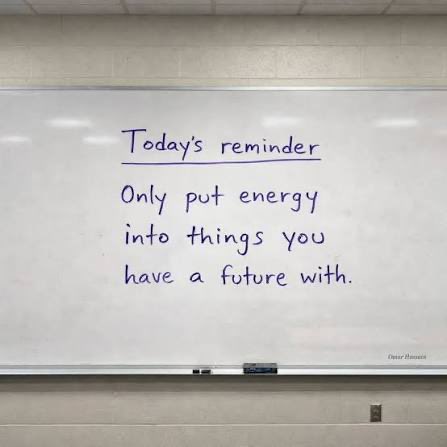 Today's reminder
Only put energy
into things you
have a future with.
Omar Hussein